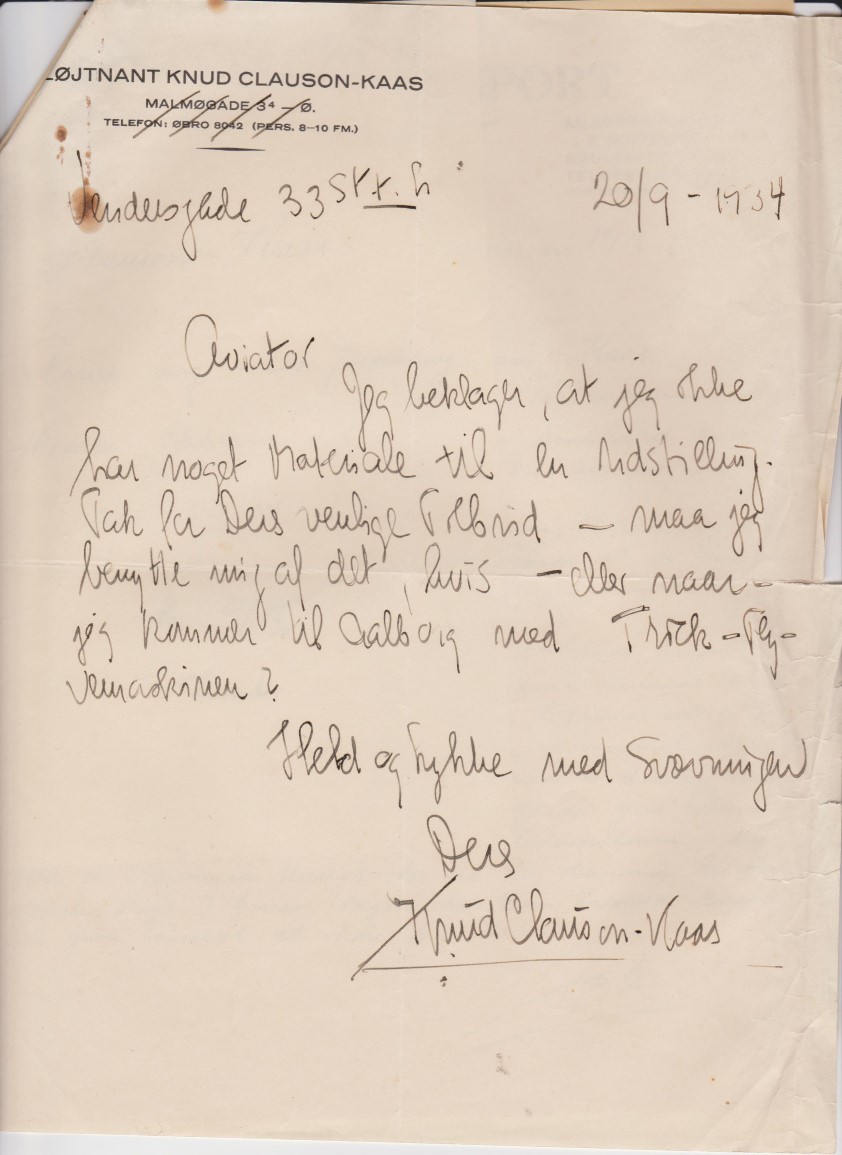 LØJTNANT KNUD CLAUSON-KAAS
MALMØGADE 3⁴ – Ø.
TELEFON: ØBRO 8042 (PERS. 8–10 FM.)
Vendersgade 33 St. t. h 20/9 - 1934
Aviator
Jeg beklager, at jeg ikke
har noget Materiale til en Udstilling.
Tak for Deres venlige Tilbud — maa jeg
benytte mig af det, hvis — eller naar —
jeg kommer til Aalborg med Trick-Fly-
vemaskinen?
Held og Lykke med Svævningen
Deres
Knud Clauson-Kaas